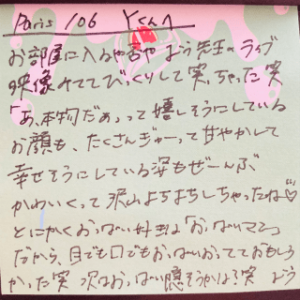 Paris 106 Yくんへ
お部屋に入るや否や よう先生のライブ
映像みててびっくりして笑っちゃった 笑
「あ、本物だぁ」って嬉しそうにしている
お顔も、たくさんぎゅーって甘やかして
幸せそうにしている姿もぜーんぶ
かわいくって沢山よちよちしちゃったね♡
とにかくおっぱい好きな「おっぱいママっ」
だから、目でも口でもおっぱいおってておもしろ
かった 笑 次はおっぱい隠そうかな? 笑 よう